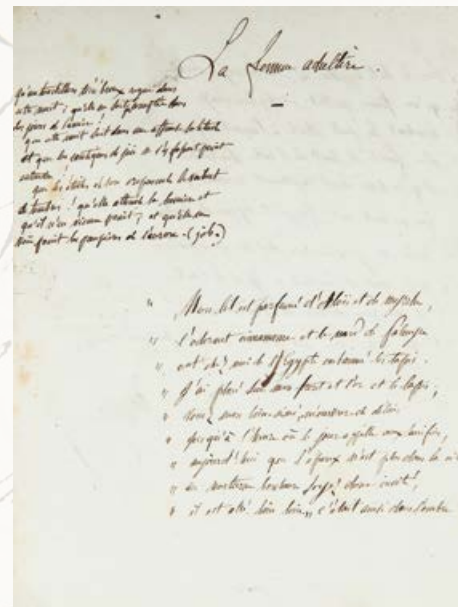 La Femme adultère.
qu'un tourbillon ténébreux regne dans
cette nuit ; qu'elle ne soit comptée dans
les jours de l'année !
que cette nuit soit dans une affreuse solitude
et que les cantiques de joie ne s'y fassent point
entendre !
que les étoiles de son crépuscule se voilent
de ténèbres ! qu'elle attende la lumière et
qu'il n'en vienne point ; et qu'elle ne
voie point les paupières de l'aurore. (job.)
" Mon lit est parfumé d'aloës et de myrrhe,
" l'odorant cinnamome et le nard de Palmyre
" ont chez moi de l'Egypte embaumé les tapis.
" J'ai placé sur mon front et l'or et le lapis,
" Venez, mon bien aimé, m'enivrer de délices
" jusqu'à l'heure où le jour appelle aux
" aujourd'hui que l'époux n'est plus dans la
" au nocturne bonheur soyez donc invité,
" il est allé bien loin, " c'était ainsi dans l'ombre